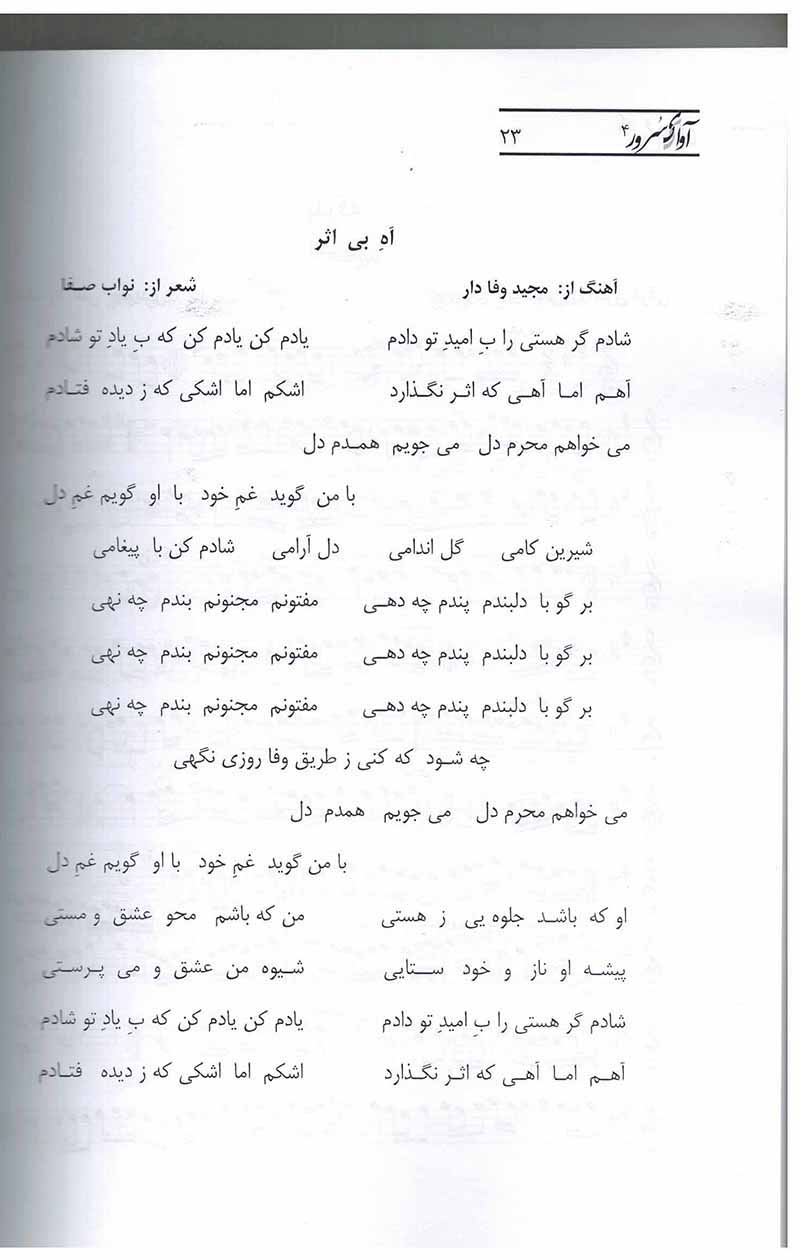 آوای سُرور ۴ ۲۳
آهِ بی اثر
آهنگ از: مجید وفا دار شعر از: نواب صفا
شادم گر هستی را بِ امیدِ تو دادم یادم کن یادم کن که بِ یادِ تو شادم
آهم اما آهی که اثر نگذارد اشکم اما اشکی که ز دیده فتادم
می خواهم محرم دل می جویم همدم دل
با من گوید غمِ خود با او گویم غمِ دل
شیرین کامی گل اندامی دل آرامی شادم کن با پیغامی
بر گو با دلبندم پندم چه دهی مفتونم مجنونم بندم چه نهی
بر گو با دلبندم پندم چه دهی مفتونم مجنونم بندم چه نهی
بر گو با دلبندم پندم چه دهی مفتونم مجنونم بندم چه نهی
چه شود که کنی ز طریق وفا روزی نگهی
می خواهم محرم دل می جویم همدم دل
با من گوید غمِ خود با او گویم غمِ دل
او که باشد جلوه یی ز هستی من که باشم محو عشق و مستی
پیشه او ناز و خود ستایی شیوه من عشق و می پرستی
شادم گر هستی را بِ امیدِ تو دادم یادم کن یادم کن که بِ یادِ تو شادم
آهم اما آهی که اثر نگذارد اشکم اما اشکی که ز دیده فتادم